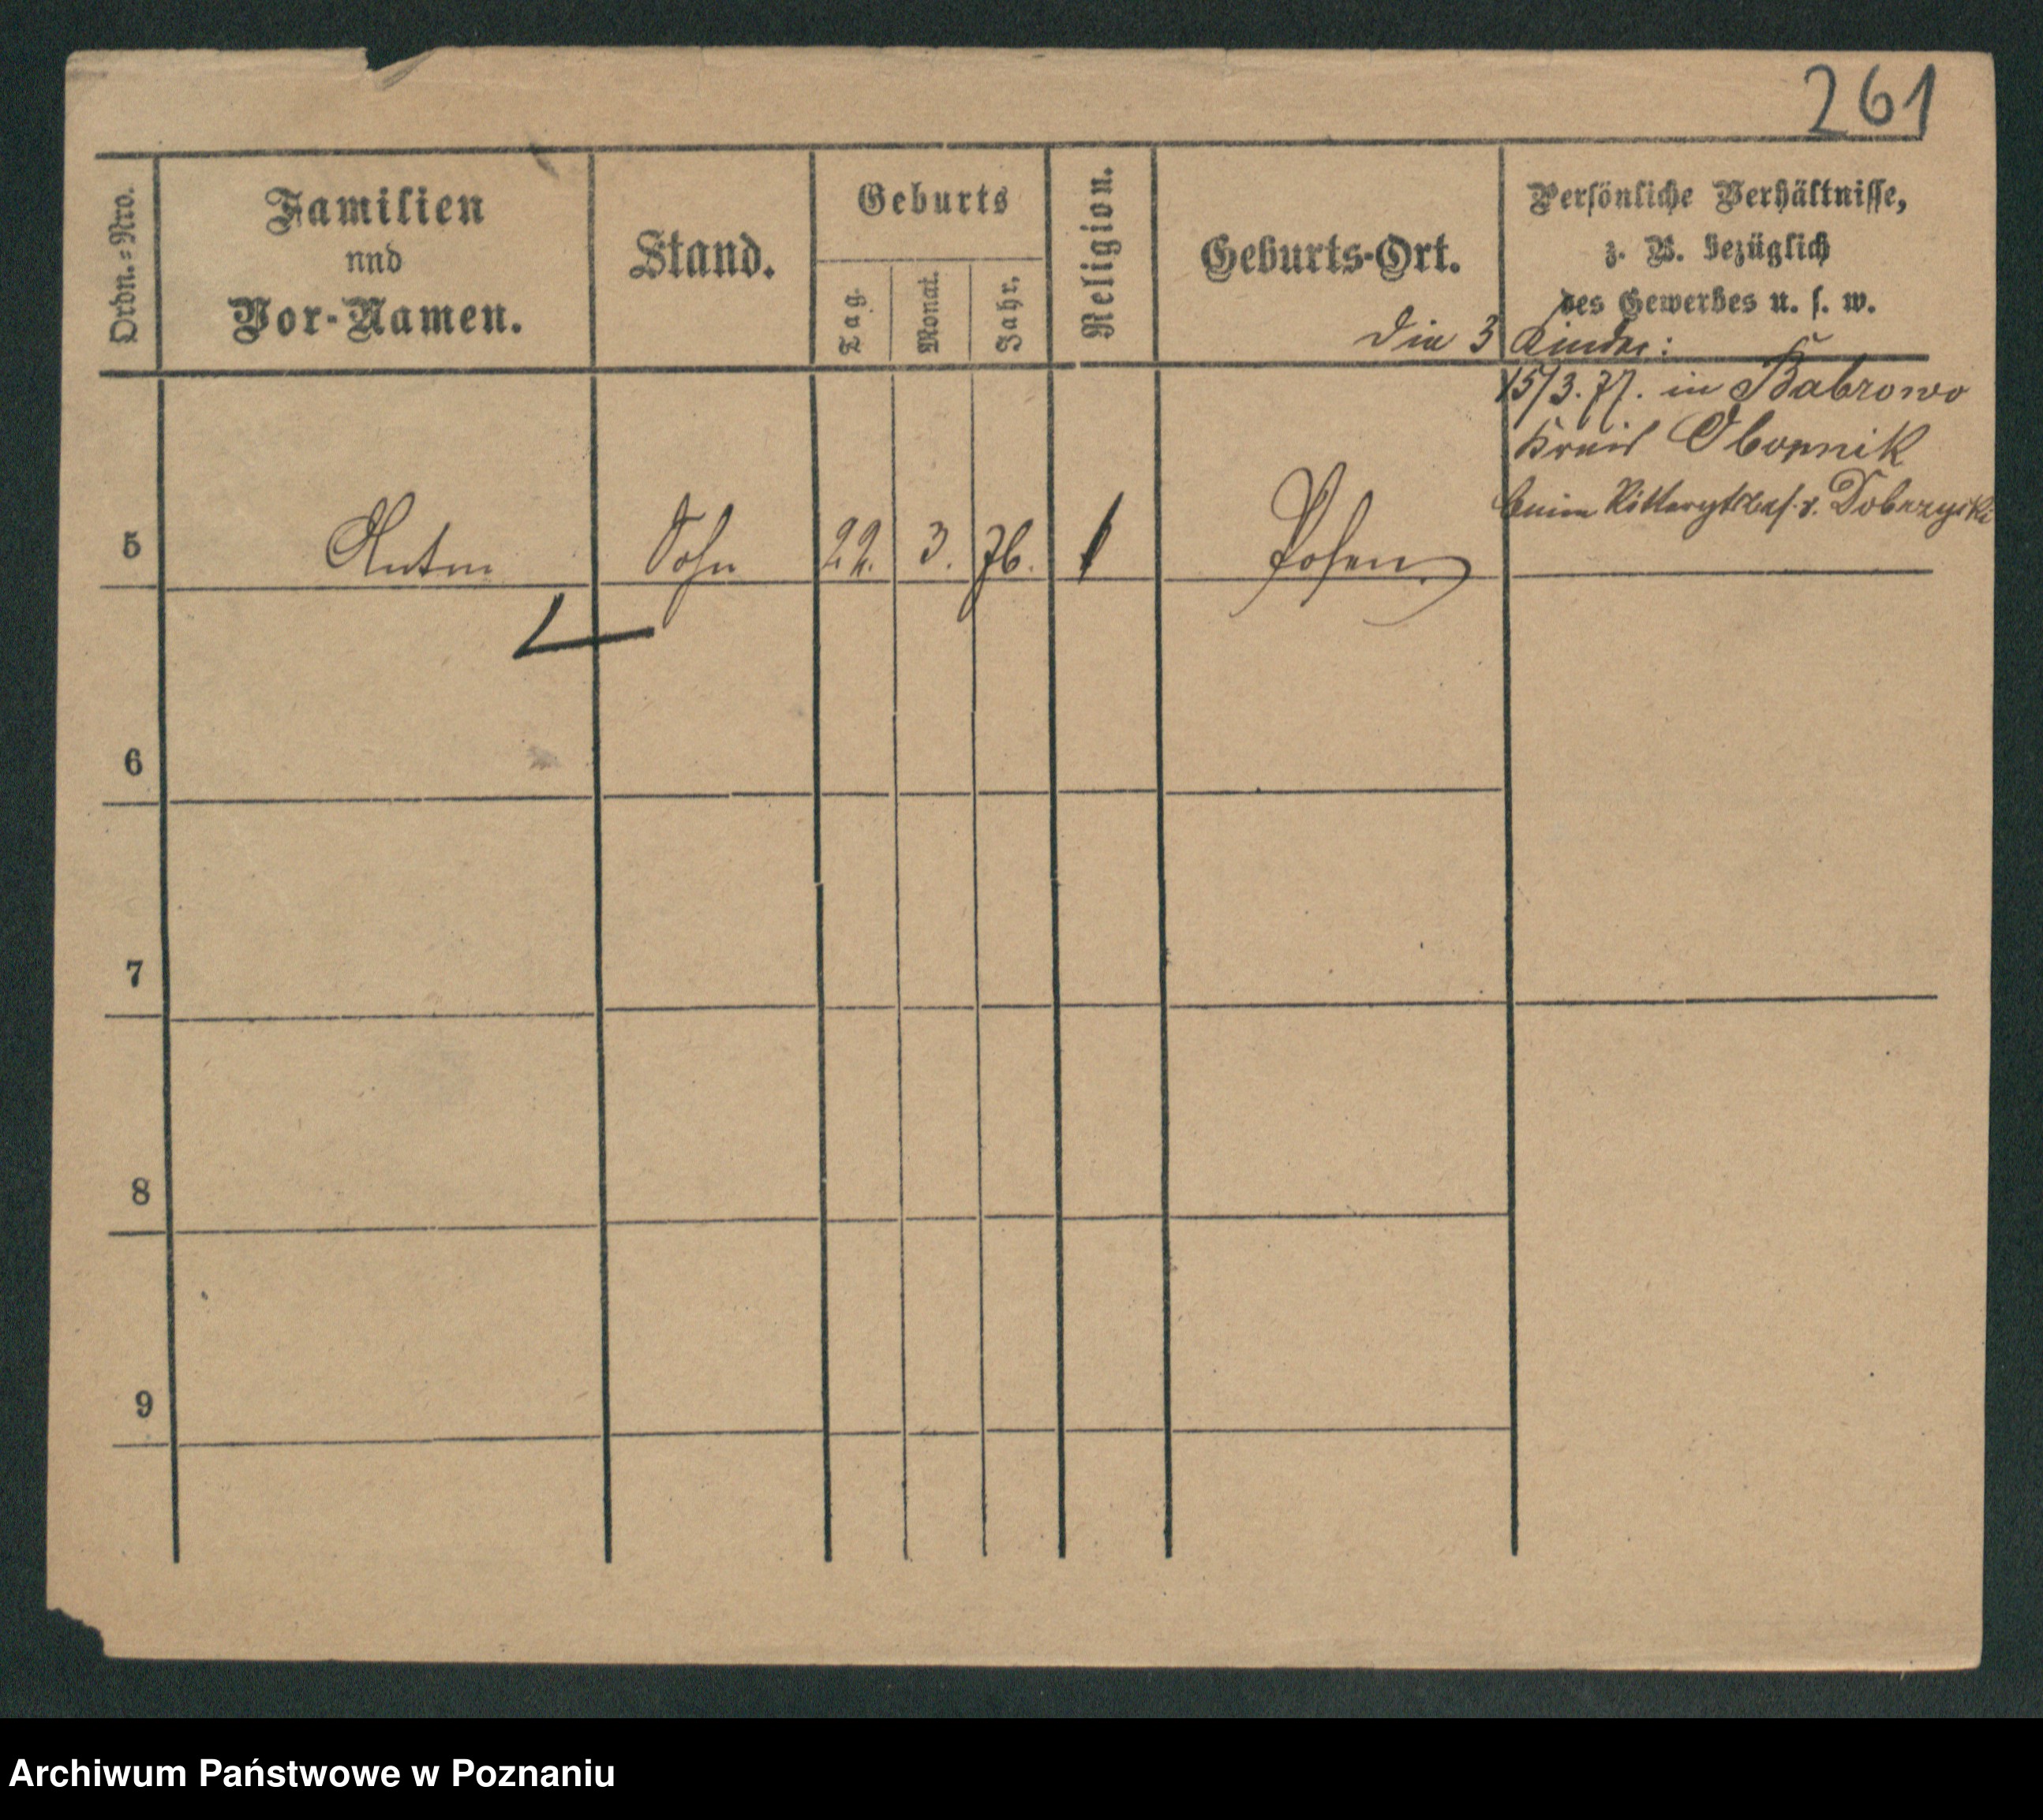 261
Ordn.=Nro.
Familien
und
Vor-Namen.
Stand.
Geburts
Tag.
Monat.
Jahr.
Religion.
Geburts-Ort.
Persönliche Verhältnisse,
z. B. bezüglich
des Gewerbes u. s. w.
Die 3 Kinder:
15/3. 77. in Babrowo
Kreis Obornik
beim Rittergutsbes. v. Dobrzycki
5 Anton Sohn 22. 3. 76. Posen.
6
7
8
9
Archiwum Państwowe w Poznaniu